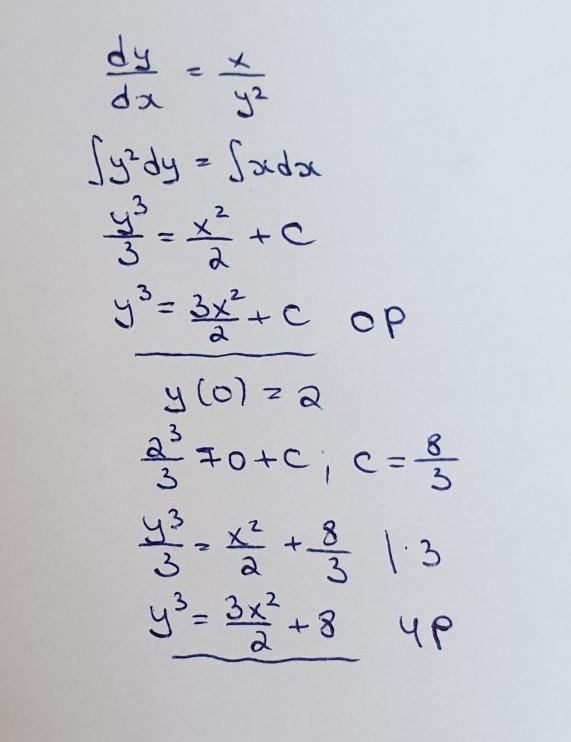 dy/dx = x/y²
∫y²dy = ∫xdx
y³/3 = x²/2 + C
y³ = 3x²/2 + C ОР
y(0) = 2
2³/3 = 0 + C; C = 8/3
y³/3 = x²/2 + 8/3 | · 3
y³ = 3x²/2 + 8 ЧР